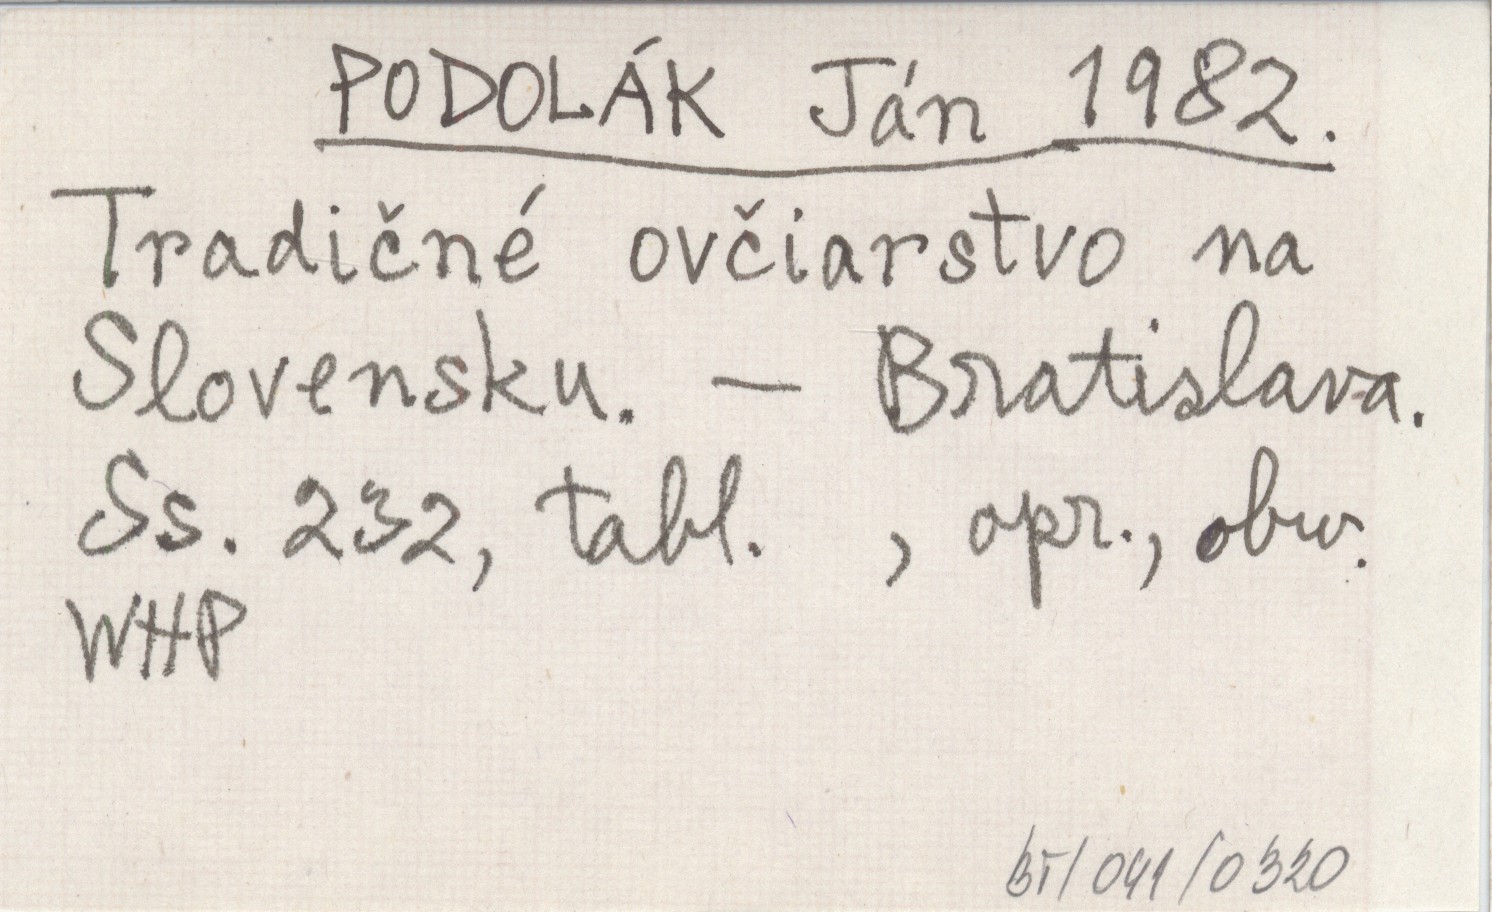 PODOLÁK Ján 1982.
Tradičné ovčiarstvo na
Slovensku. — Bratislava.
Ss. 232, tabl. , opr., obw.
WHP
BT/041/0320